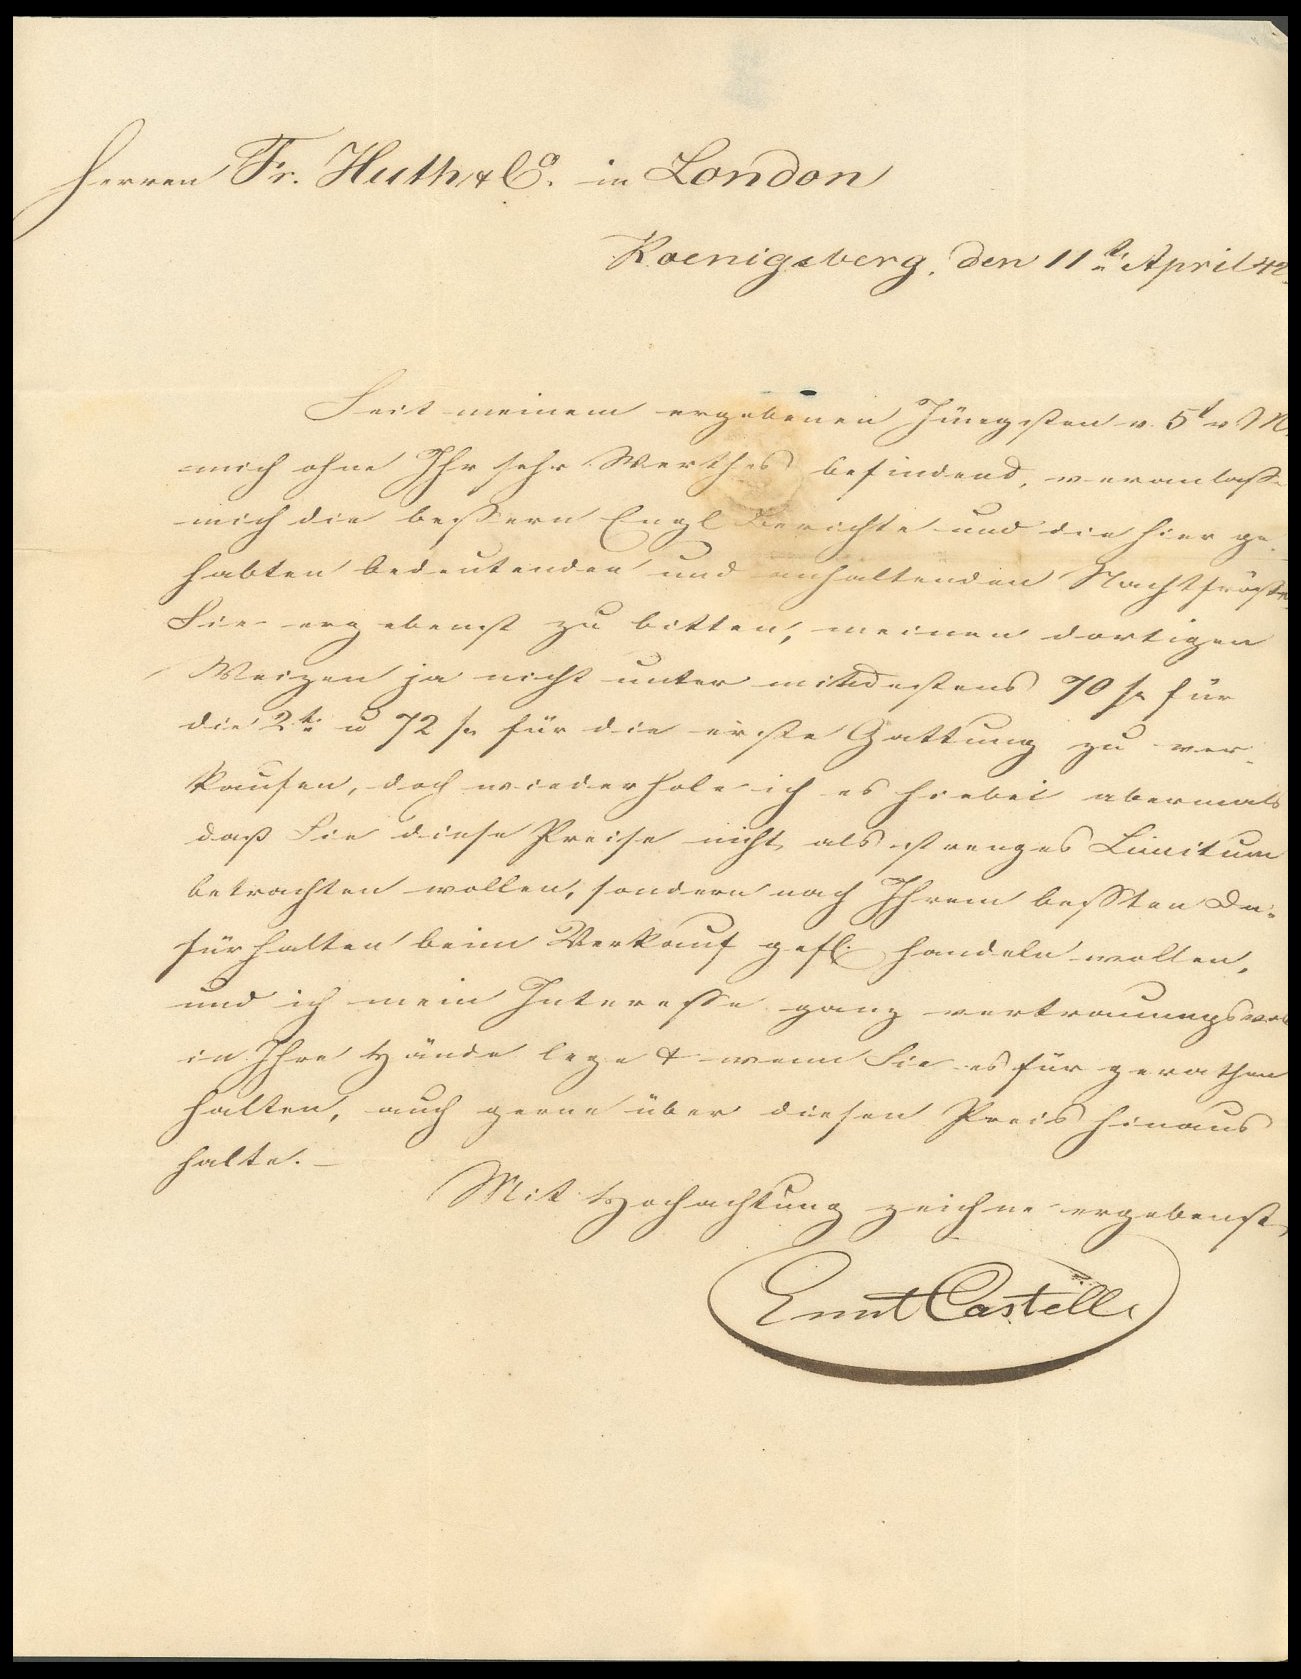 Herren Fr. Huth & Co. in London
Koenigsberg, den 11t. April 42.
Seit meinem ergebenen Jüngsten v. 5t v M.
mich ohne Ihr sehr Werthes befindend, veranlasse
mich die bessern Engl Berichte und die hier ge-
habten bedeutenden und anhaltenden Nachtfröste
Sie ergebenst zu bitten, meinen dortigen
Weizen ja nicht unter mindestens 70 s. für
die 2te u 72 s. für die erste Gattung zu ver-
kaufen, doch wiederhole ich es hiebei abermals
daß Sie diese Preise nicht als strenges Limitum
betrachten wollen, sondern nach Ihrem bessten Da-
fürhalten beim Verkauf gefl. handeln wollen,
und ich mein Interesse ganz vertrauungsvoll
in Ihre Hände lege & wenn Sie es für gerathen
halten, auch gerne über diesen Preis hinaus
halte. –
Mit Hochachtung zeichne ergebenst
Ernst Castell